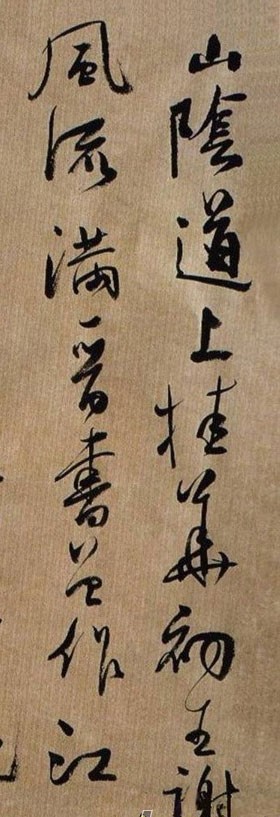 山陰道上桂華初王謝
風流滿晉書曾作江